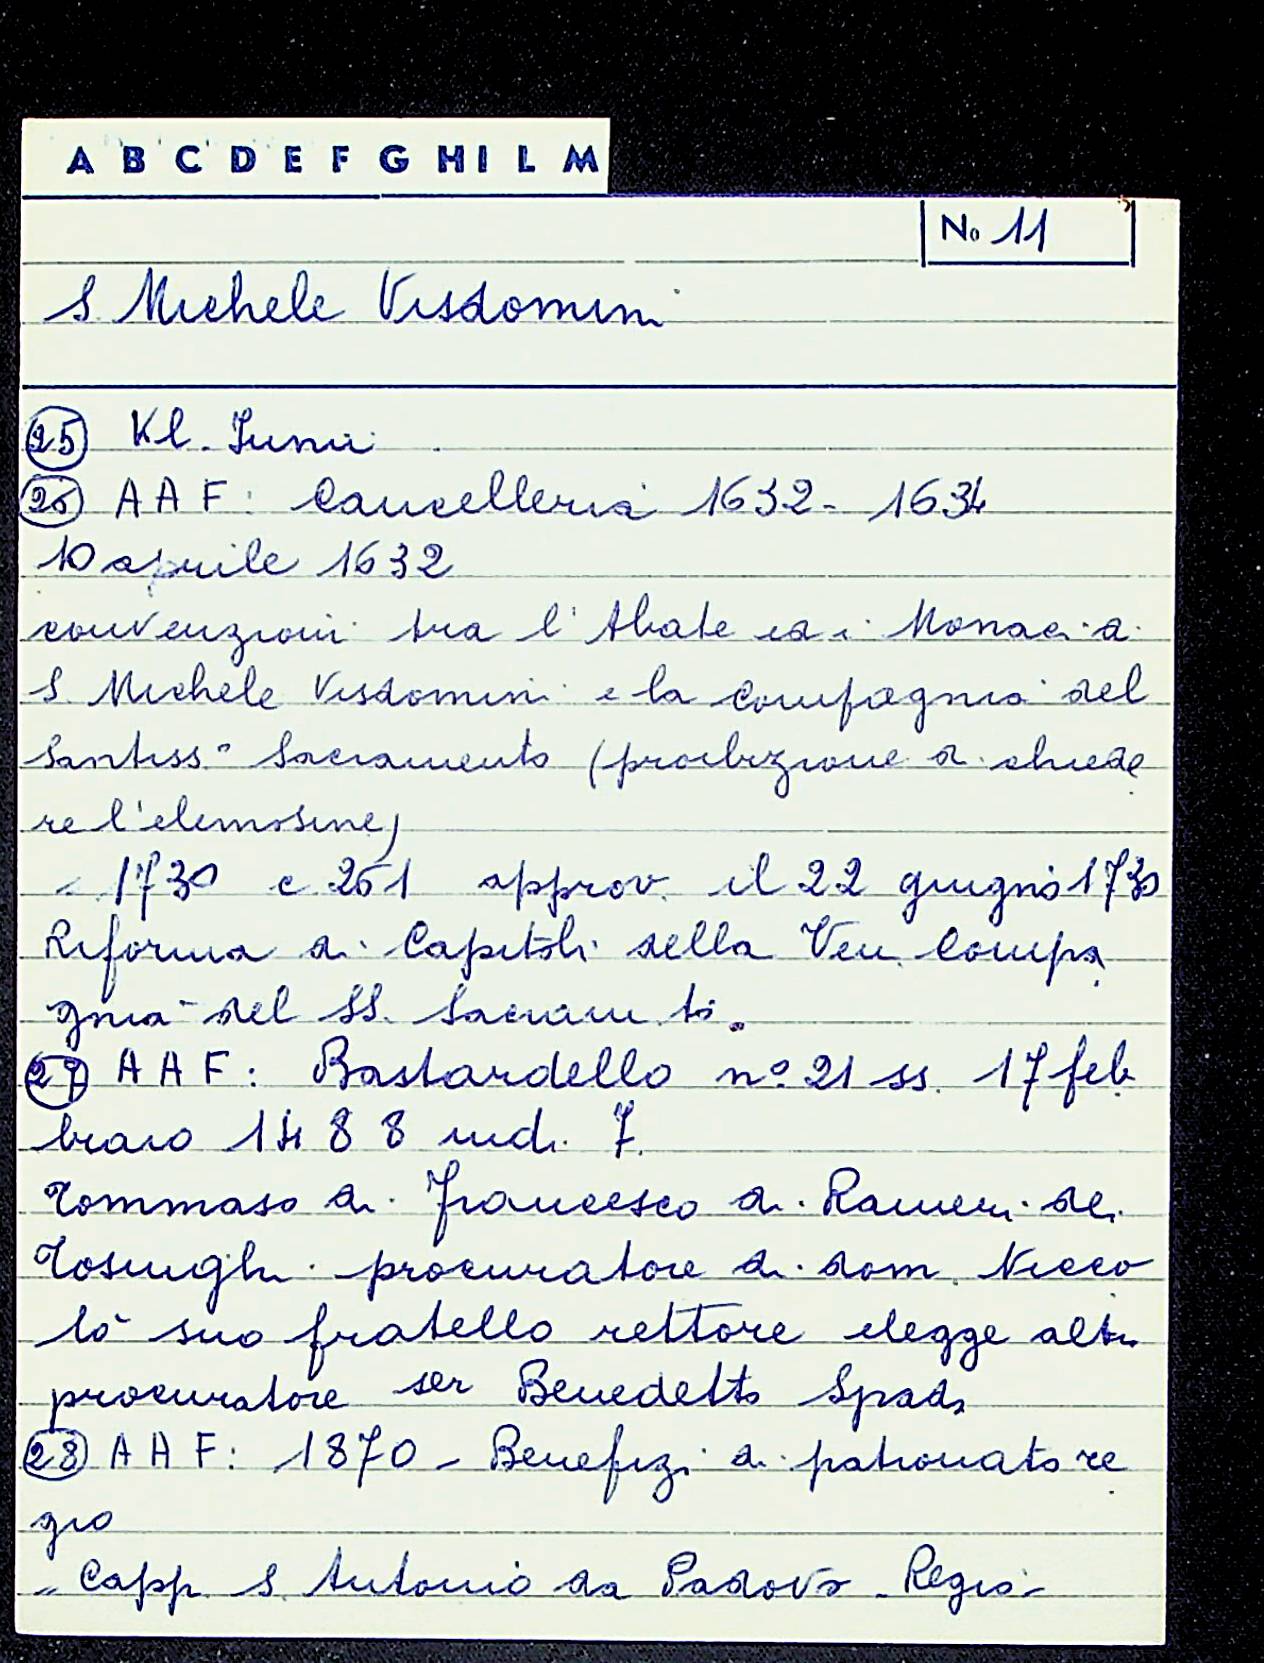 A B C D E F G HI L M
No 11
S. Michele Visdomini
25 Kl. Junii
26 AAF: Cancelleria 1632- 1634
10 aprile 1632
convenzioni tra l'Abate ed i Monaci di
S. Michele Visdomini e la Compagnia del
Santiss° Sacramento (proibizione di chiede
re l'elemosine)
- 1730 c 261 approv. il 22 giugno 1730
Riforma di Capitoli della Ven. Compa
gnia del SS. Sacram.to.
27 AAF: Bastardello n° 21 ss. 17 feb
braio 1488 ind. 7.
Tommaso di Francesco di Ranieri dei
Tosinghi procuratore di dom. Nicco
lò suo fratello rettore elegge altro
procuratore ser Benedetto Spadi
28 AAF: 1870 - Benefizi di patronato re
gio
- Capp. S. Antonio da Padova - Regio -